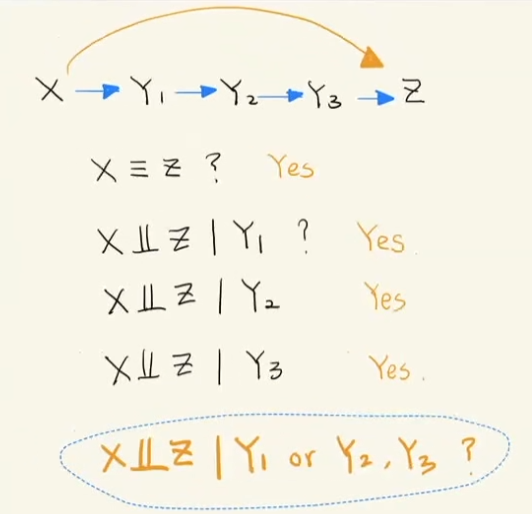 X → Y₁ → Y₂ → Y₃ → Z
X ≡ Z ? Yes
X ⫫ Z | Y₁ ? Yes
X ⫫ Z | Y₂ Yes
X ⫫ Z | Y₃ Yes.
X ⫫ Z | Y₁ or Y₂, Y₃ ?